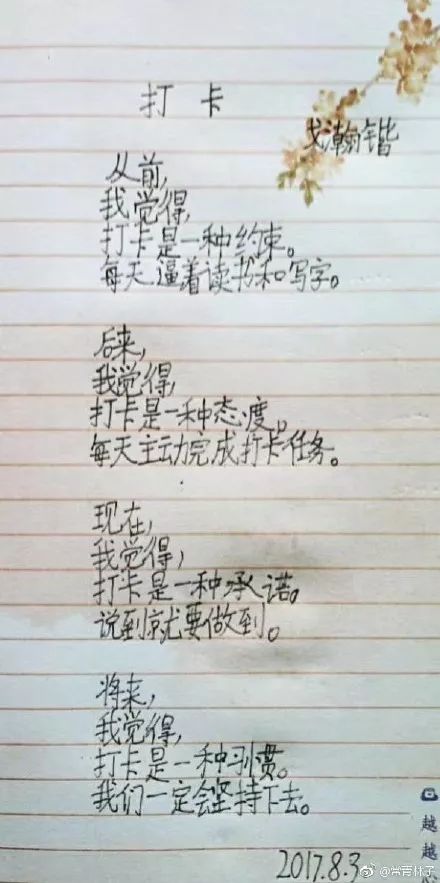 打卡
戈瀚锴
从前,
我觉得,
打卡是一种约束。
每天逼着读书和写字。
后来,
我觉得,
打卡是一种态度。
每天主动完成打卡任务。
现在,
我觉得,
打卡是一种承诺。
说到就要做到。
将来,
我觉得,
打卡是一种习惯。
我们一定会坚持下去。
2017.8.3
越越
@常青林子